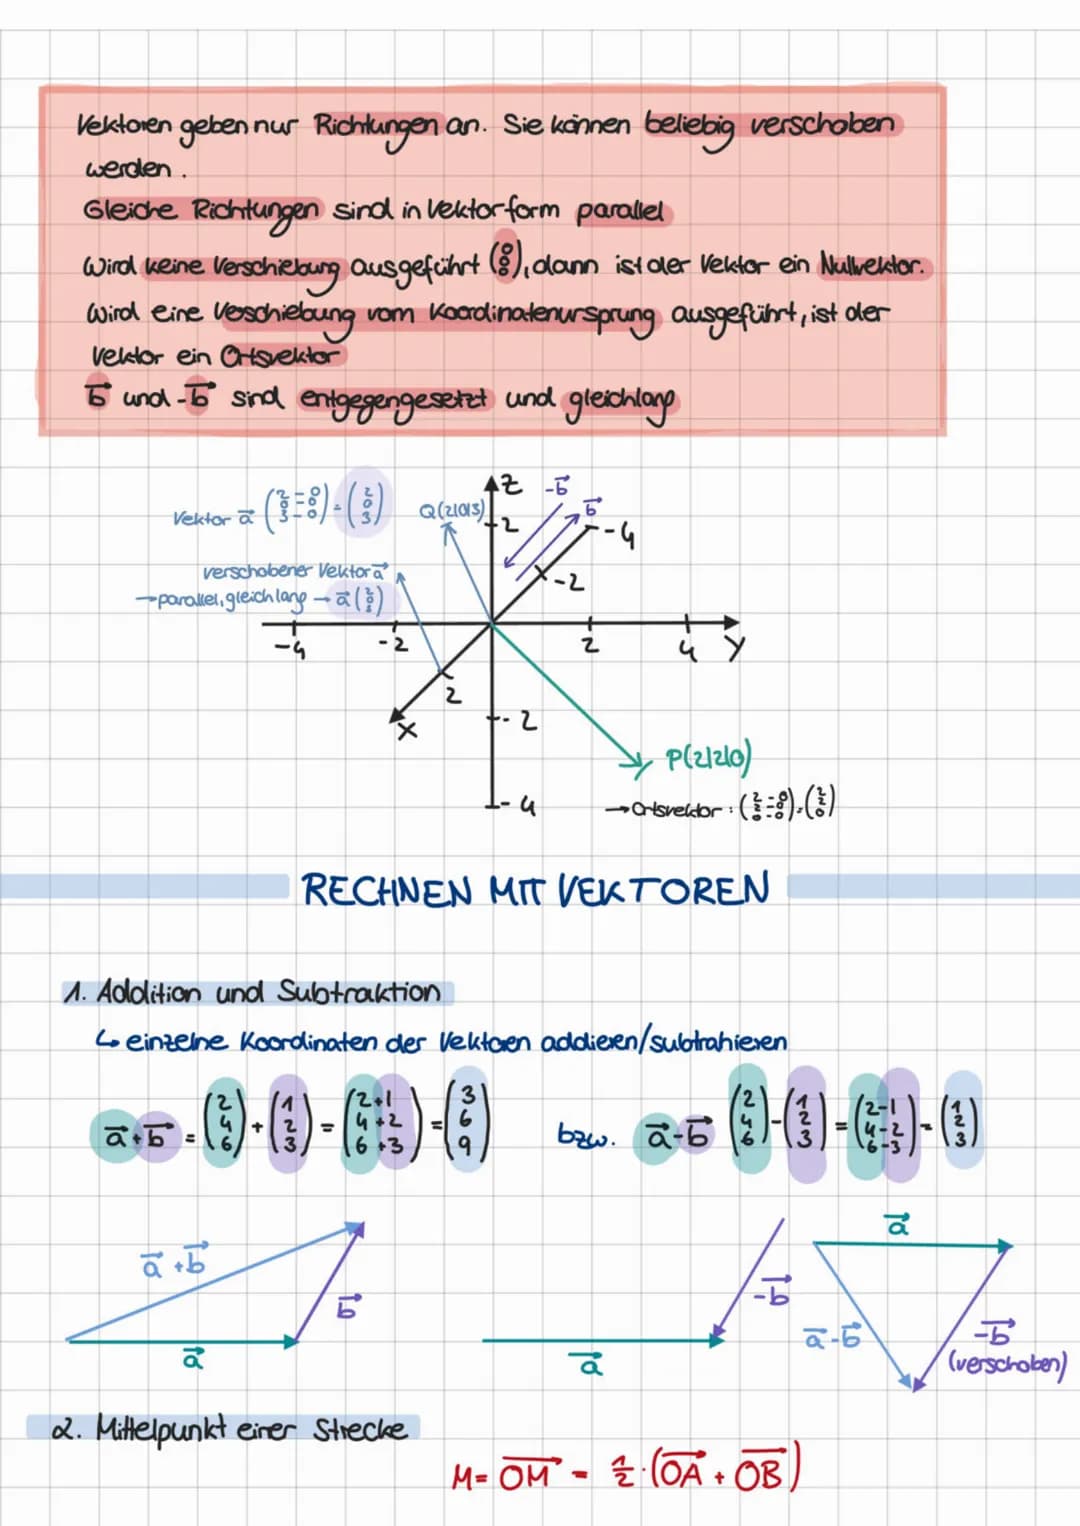 Vektoren geben nur Richtungen an. Sie können beliebig verschoben
werden.
Gleiche Richtungen sind in Vektorform parallel
Wird keine Verschiebung ausgeführt (0 0 0), dann ist der Vektor ein Nullvektor.
Wird eine Veschiebung vom Koordinatenursprung ausgeführt, ist der
Vektor ein Ortsvektor
b⃗ und -b⃗ sind entgegengesetzt und gleichlang
Vektor a⃗ (2-0 0-0 3-0) = (2 0 3)
Q(2|0|3)
z
-b⃗
b⃗
2
-4
verschobener Vektor a⃗
→parallel, gleichlang → a⃗ (2 0 3)
-2
-4
-2
2
4
y
2
x
-2
P(2|2|0)
-4
→Ortsvektor: (2-0 2-0 0-0) = (2 2 0)
RECHNEN MIT VEKTOREN
1. Addition und Subtraktion
↳ einzelne Koordinaten der Vektoen addieren/subtrahieren
a⃗+b⃗ = (2 4 6) + (1 2 3) = (2+1 4+2 6+3) = (3 6 9) bzw. a⃗-b⃗ (2 4 6) - (1 2 3) = (2-1 4-2 6-3) = (1 2 3)
a⃗+b⃗
b⃗
a⃗
-b⃗
a⃗
a⃗
a⃗-b⃗
-b⃗
(verschoben)
2. Mittelpunkt einer Strecke
M = OM⃗ = 1/2 · (OA⃗ + OB⃗)